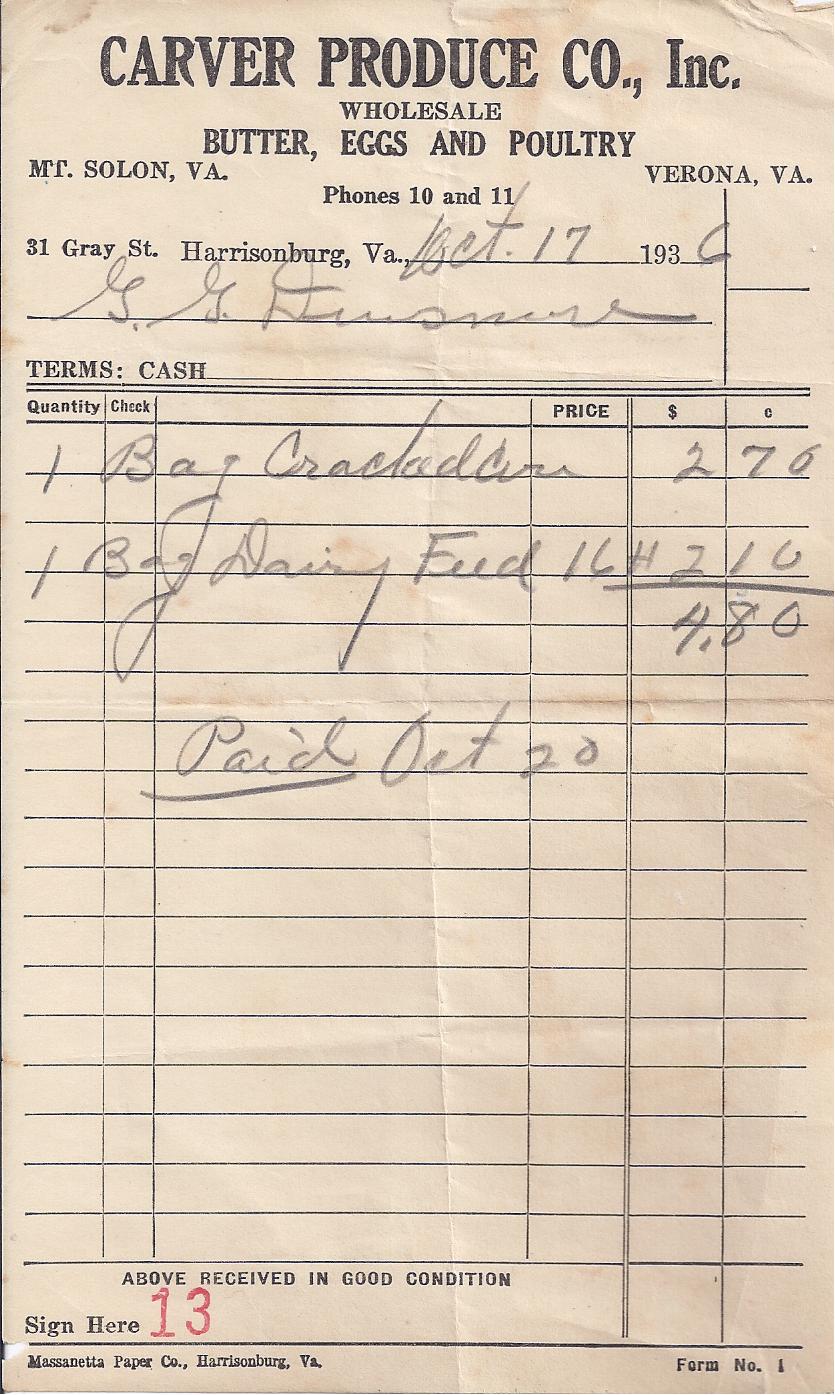 CARVER PRODUCE CO., Inc.
WHOLESALE
BUTTER, EGGS AND POULTRY
MT. SOLON, VA. VERONA, VA.
Phones 10 and 11
31 Gray St. Harrisonburg, Va., Oct. 17 1936
G. G. Dinsmore
TERMS: CASH
Quantity Check PRICE $ c
1 Bag Cracked Corn 2 70
1 Bag Dairy Feed 16 2 10
4.80
Paid Oct 20
ABOVE RECEIVED IN GOOD CONDITION
Sign Here 13
Massanetta Paper Co., Harrisonburg, Va. Form No. 1